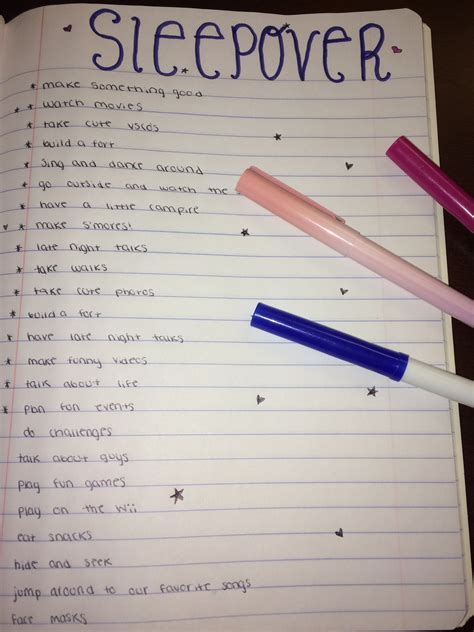 SLEEPOVER
* make something good
* * watch movies
* take cute vscos
* build a fort
* sing and dance around
* go outside and watch the
* have a little campire
♥ * make s'mores!
* late night talks
* take walks
* take cute photos
* build a fort
* have late night talks
* make funny videos
* talk about life
* plan fun events
do challenges
talk about guys
play fun games
play on the Wii
eat snacks
hide and seek
jump around to our favorite songs
face masks